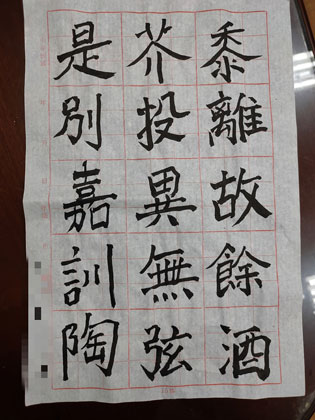 黍離故餘酒
芥投異無弦
是別嘉訓陶